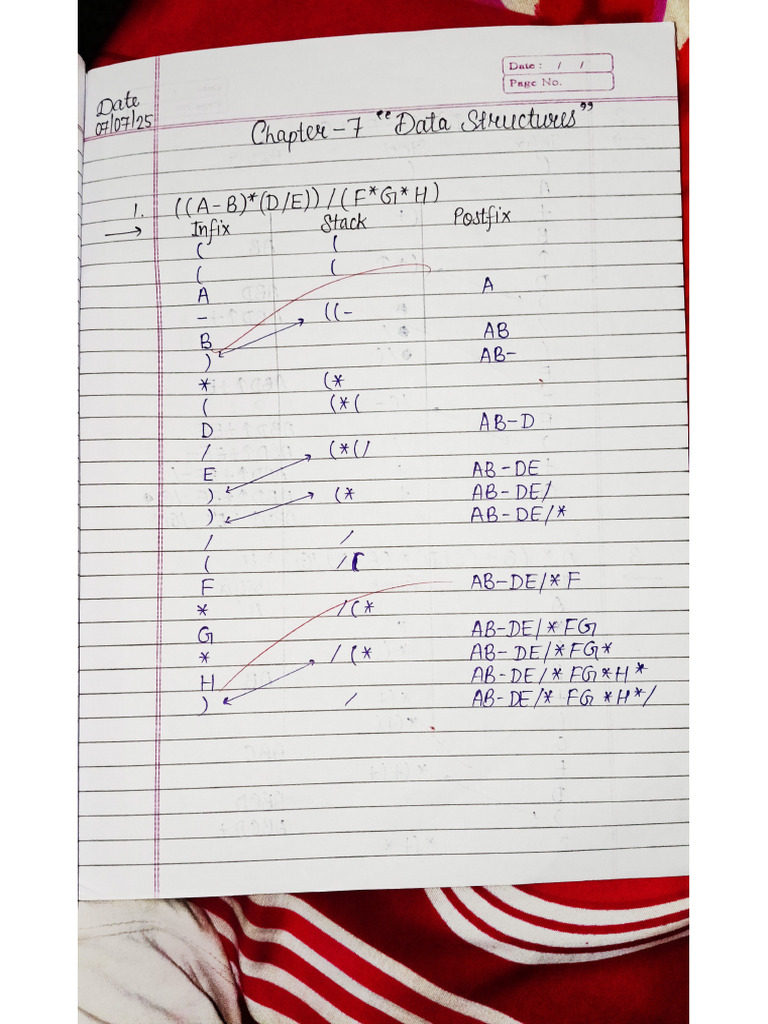 Date : / /
Page No.
Date
07/07/25
Chapter-7 "Data Structures"
1. ((A-B)*(D/E))/(F*G*H)
→ Infix Stack Postfix
( (
( (
A A
- ((-
B AB
) AB-
* (*
( (*(
D AB-D
/ (*(/
E AB-DE
) (* AB-DE/
) AB-DE/*
/ /
( /(
F AB-DE/*F
* /(*
G AB-DE/*FG
* /(* AB-DE/*FG*
H AB-DE/*FG*H*
) / AB-DE/*FG*H*/